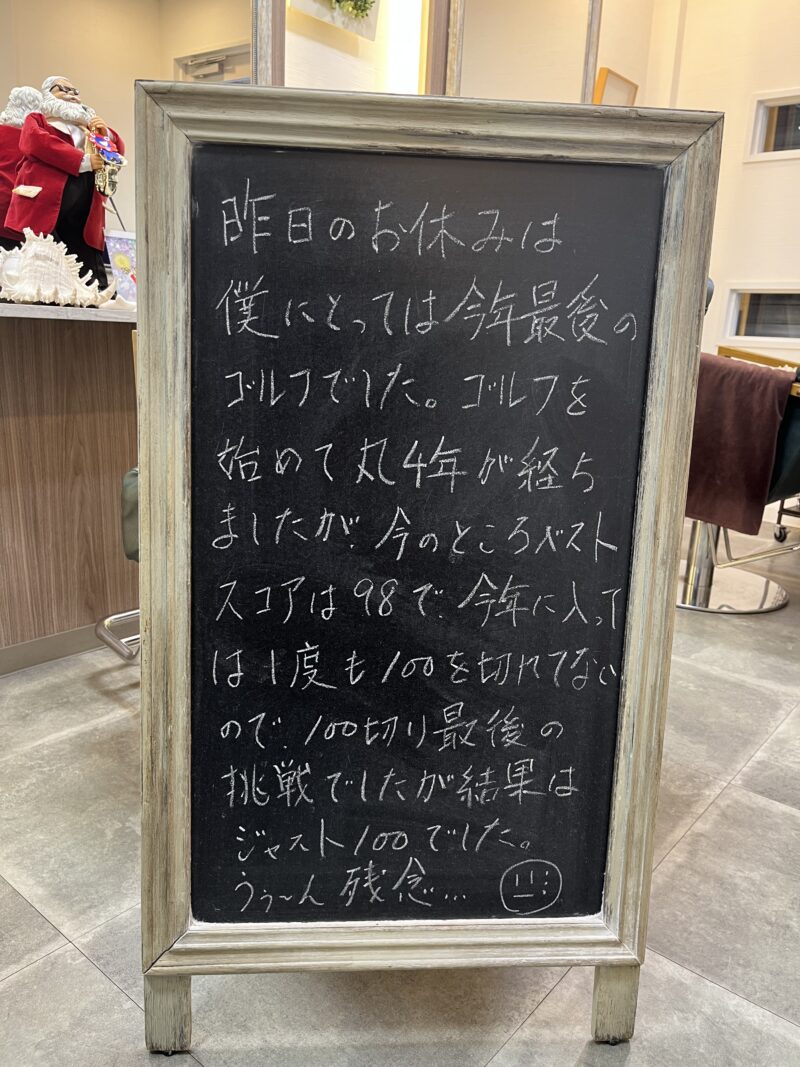 昨日のお休みは
僕にとっては今年最後の
ゴルフでした。ゴルフを
始めて丸4年が経ち
ましたが、今のところベスト
スコアは98で、今年に入って
は1度も100を切れてない
ので、100切り最後の
挑戦でしたが結果は
ジャスト100でした。
うぅ〜ん 残念...